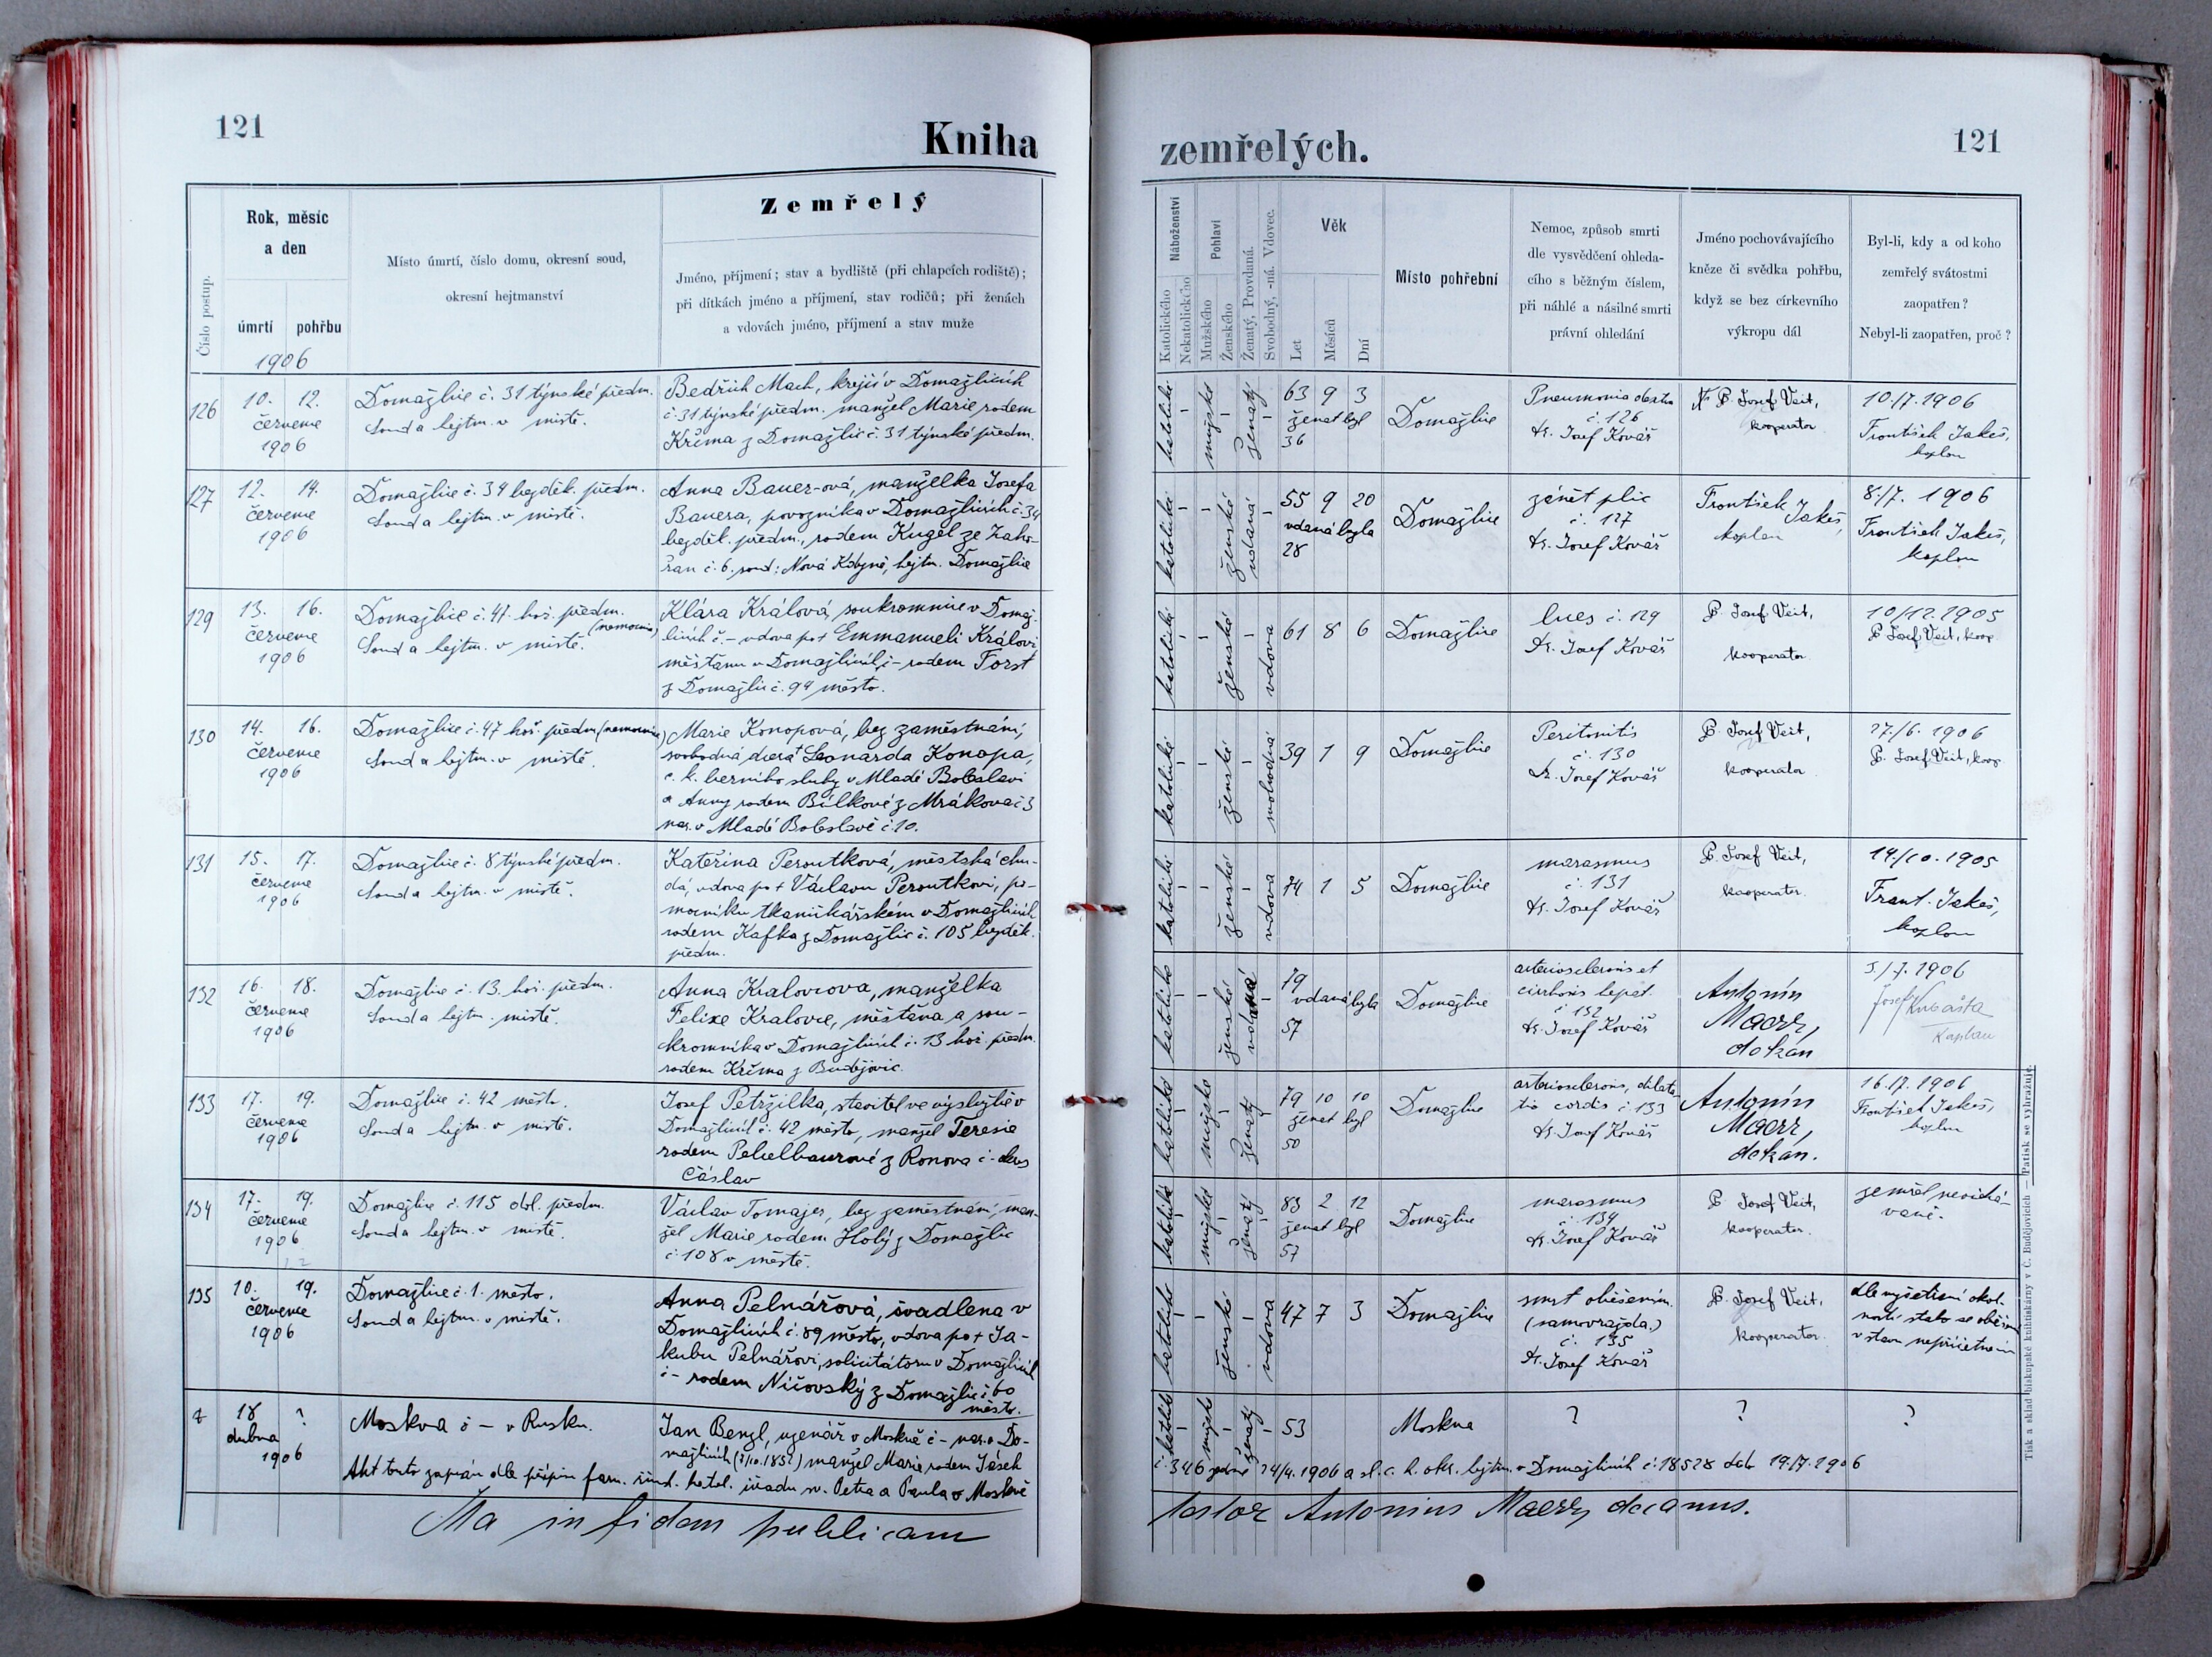 121
Kniha
zemřelých.
121
Číslo postup.
Rok, měsíc
a den
úmrtí
pohřbu
1906
Místo úmrtí, číslo domu, okresní soud,
okresní hejtmanství
Zemřelý
Jméno, příjmení; stav a bydliště (při chlapcích rodiště);
při dítkách jméno a příjmení, stav rodičů; při ženách
a vdovách jméno, příjmení a stav muže
Náboženství
Katolického
Nekatolického
Pohlaví
Mužského
Ženského
Ženatý, Provdaná.
Svobodný, -ná. Vdovec.
Věk
Let
Měsíců
Dní
Místo pohřební
Nemoc, způsob smrti
dle vysvědčení ohleda-
cího s běžným číslem,
při náhlé a násilné smrti
právní ohledání
Jméno pochovávajícího
kněze či svědka pohřbu,
když se bez církevního
výkropu dál
Byl-li, kdy a od koho
zemřelý svátostmi
zaopatřen?
Nebyl-li zaopatřen, proč?
126
10. 12.
července
1906
Domažlice č. 31 týnské předm.
Soud a hejtm. v místě.
Bedřich Mach, krejčí v Domažlicích
č. 31 týnské předm. manžel Marie rodem
Křima z Domažlic č. 31 týnské předm.
katolické
mužské
ženatý
63 9 3
ženat byl
36
Domažlice
Pneumonia
č. 126
Dr. Josef Kovář
P. Josef Veit,
kooperator
10./7. 1906
František Jakeš,
kaplan
127
12. 14.
července
1906
Domažlice č. 34 bezděk. předm.
Soud a hejtm. v místě.
Anna Bauer-ová, manželka Josefa
Bauera, povozníka v Domažlicích č. 34
bezděk. předm., rodem Kugel ze Zaho-
řan č. 6. soud: Nová Kdyně, hejtm. Domažlice
katolické
ženské
vdaná
55 9 20
vdaná byla
28
Domažlice
zánět plic
č. 127
Dr. Josef Kovář
František Jakeš,
kaplan
8./7. 1906
František Jakeš,
kaplan
129
13. 16.
července
1906
Domažlice č. 47. hoř. předm.
(nemocnice)
Soud a hejtm. v místě.
Klára Králová, soukromnice v Domaž-
licích č. – vdova po † Emmanueli Královi
měšťanu v Domažlicích č – rodem Forst
z Domažlic č. 94 město.
katolické
ženské
vdova
61 8 6
Domažlice
lues č. 129
Dr. Josef Kovář
P. Josef Veit,
kooperator
10/12. 1905
P. Josef Veit, koop.
130
14. 16.
července
1906
Domažlice č. 47 hoř. předm. (nemocnice)
Soud a hejtm. v místě.
Marie Konopová, bez zaměstnání,
svobodná dcera Leonarda Konopa,
c. k. berního sluhy v Mladé Boleslavi
a Anny rodem Bílkové z Mrákova č 3
nar. v Mladé Boleslavě č. 10.
katolické
ženské
svobodná
39 1 9
Domažlice
Peritonitis
č. 130
Dr. Josef Kovář
P. Josef Veit,
kooperator
27./6. 1906
P. Josef Veit, koop.
131
15. 17.
července
1906
Domažlice č. 8 týnské předm.
Soud a hejtm. v místě.
Kateřina Peroutková, městská chu-
dá, vdova po † Václavu Peroutkovi, po-
mocníku tkaničkářském v Domažlicích
rodem Kafka z Domažlic č. 105 bezděk.
předm.
katolické
ženské
vdova
74 1 5
Domažlice
marasmus
č. 131
Dr. Josef Kovář
P. Josef Veit,
kooperator.
14./10. 1905
Frant. Jakeš,
kaplan
132
16. 18.
července
1906
Domažlice č. 13. hoř. předm.
Soud a hejtm. místě.
Anna Kralovcova, manželka
Felixe Kralovce, měšťana a sou-
kromníka v Domažlicích č. 13 hoř. předm.
rodem Křima z Budějovic.
katolické
ženské
vdaná
79
vdaná byla
57
Domažlice
arteriosclerosis et
cirrhosis hepat.
č 132
Dr. Josef Kovář
Antonín
Maerz,
děkan
5./7. 1906
Josef Kubašta
Kaplan
133
17. 19.
července
1906
Domažlice č. 42 město.
Soud a hejtm. v místě.
Josef Petržilka, stavitel ve výslužbě v
Domažlicích č. 42 město, manžel Teresie
rodem Pehelbaurové z Ronova č – okres
Čáslav
katolické
mužské
ženatý
79 10 10
ženat byl
50
Domažlice
arteriosclerosis, dilata-
tio cordis č 133
Dr. Josef Kovář
Antonín
Maerz,
děkan.
16./7. 1906
František Jakeš,
kaplan
134
17. 19.
července
1906
Domažlice č. 115 dol. předm.
Soud a hejtm. v místě.
Václav Tomajer, bez zaměstnání, man-
žel Marie rodem Holý z Domažlic
č. 108 v městě.
katolické
mužské
ženatý
83 2 12
ženat byl
57
Domažlice
marasmus
č. 134
Dr. Josef Kovář
P. Josef Veit,
kooperator.
zemřel neočeká-
vaně.
135
10. 19.
července
1906
Domažlice č. 1. město.
Soud a hejtm. v místě.
Anna Pelnářová, švadlena v
Domažlicích č. 89 město, vdova po † Ja-
kubu Pelnářovi, solicitátoru v Domažlicích
č – rodem Ničovský z Domažlic č. 60
město.
katolické
ženské
vdova
47 7 3
Domažlice
smrt oběšením
(samovražda.)
č. 135
Dr. Josef Kovář
P. Josef Veit,
kooperator.
dle vyšetření okol-
ností stalo se oběšení
v stavu nepříčetném
18 ?
dubna
1906
Moskva č – v Rusku.
Jan Bengl, uzenář v Moskvě č – nar. v Do-
mažlicích manžel Marie rodem Jäsch
katolické
mužské
ženatý
53
Moskva
?
?
?
Akt tento zapsán dle přípisu farn. římsk. katol. úřadu sv. Petra a Pavla v Moskvě
č. 346 24/4. 1906 a sl. c. k. okr. hejtm. v Domažlicích č. 18528 ddo 19./7. 1906
Ita in fidem publicam
testor Antonius Maerz decanus.
Tisk a sklad biskupské knihtiskárny v Č. Budějovicích — Patisk se vyhražuje.